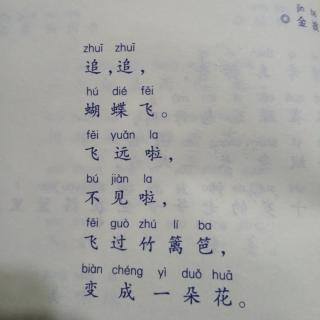 zhuī zhuī
追,追,
hú dié fēi
蝴蝶飞。
fēi yuǎn la
飞远啦,
bú jiàn la
不见啦,
fēi guò zhú lí ba
飞过竹篱笆,
biàn chéng yì duǒ huā
变成一朵花。